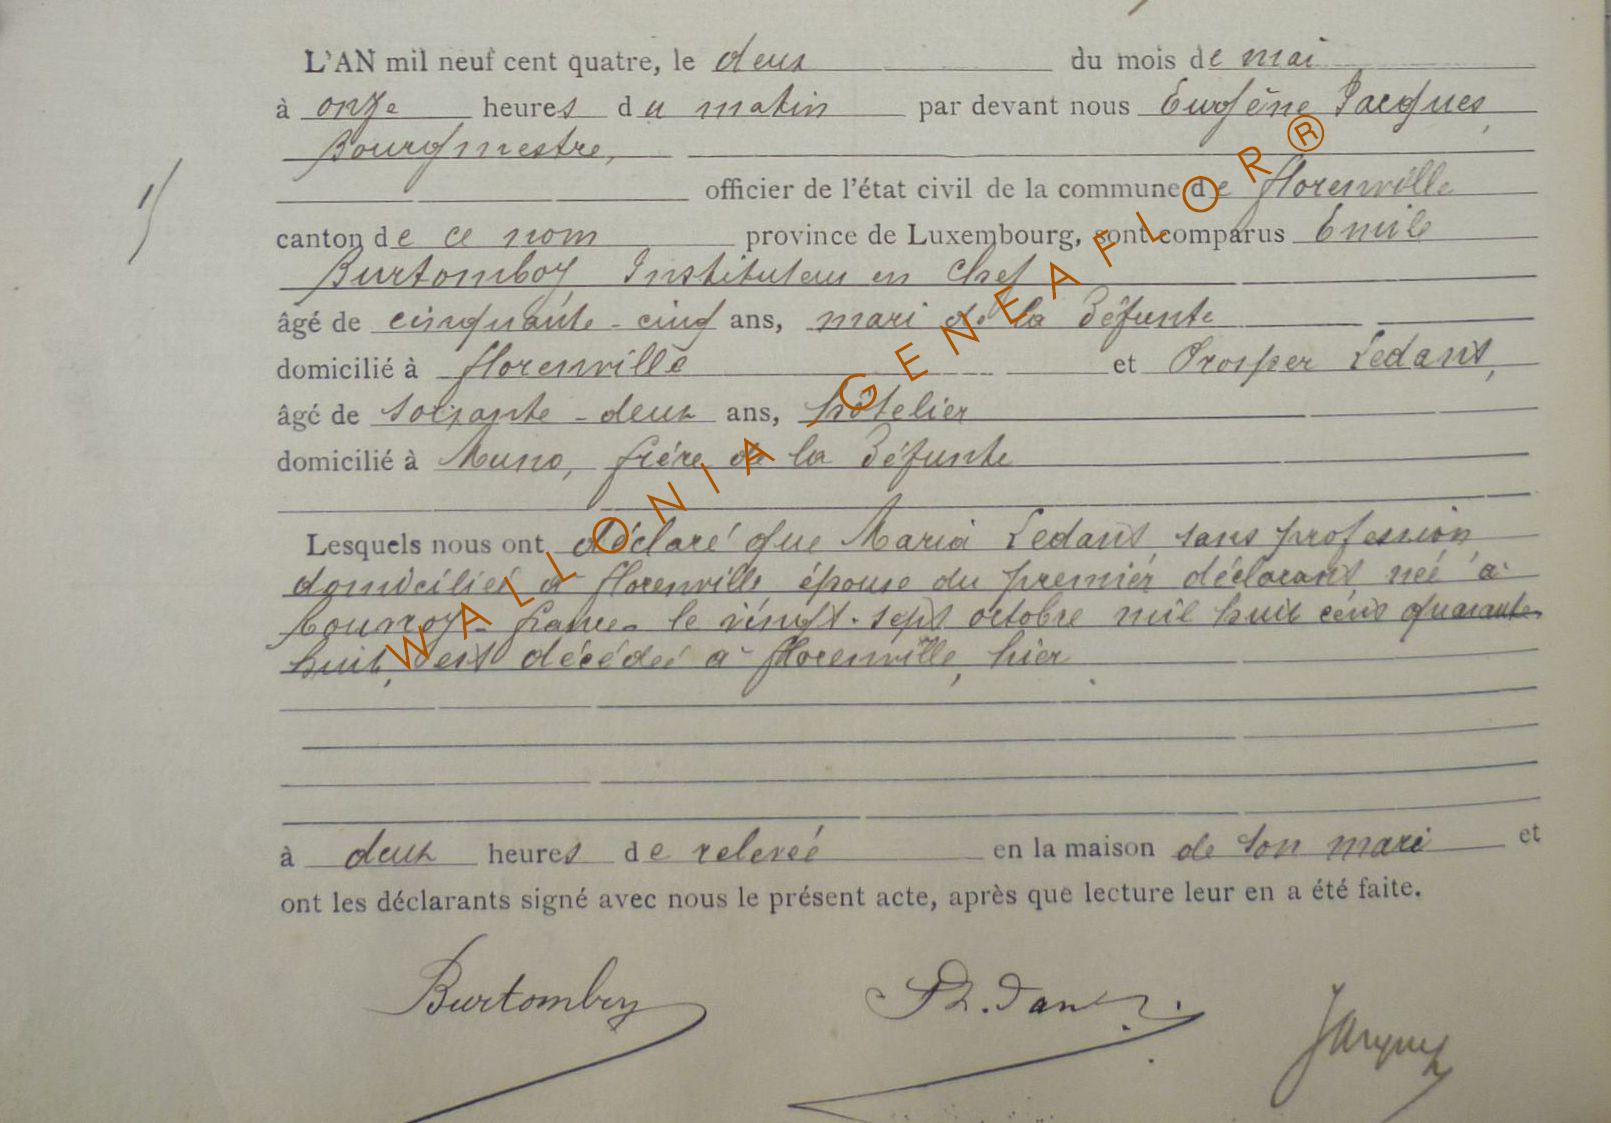 L'AN mil neuf cent quatre, le deux du mois de mai
à onze heures du matin par devant nous Eugène Jacques,
Bourgmestre,
officier de l'état civil de la commune de florenville
canton de ce nom province de Luxembourg, sont comparus Emile
Burtomboy Instituteur en Chef
âgé de cinquante-cinq ans, mari de la défunte
domicilié à florenville et Prosper Ledant,
âgé de soixante-deux ans, hôtelier
domicilié à Muno, frère de la défunte
Lesquels nous ont déclaré que Maria Ledant, sans profession
domiciliée à florenville épouse du premier déclarant née à
france le vingt-sept octobre mil huit cent quarante
huit, est décédée à florenville, hier
à deux heures de relevée en la maison de son mari et
ont les déclarants signé avec nous le présent acte, après que lecture leur en a été faite.
Burtomboy Jacques
WALLONIA / GENEAFLOR®